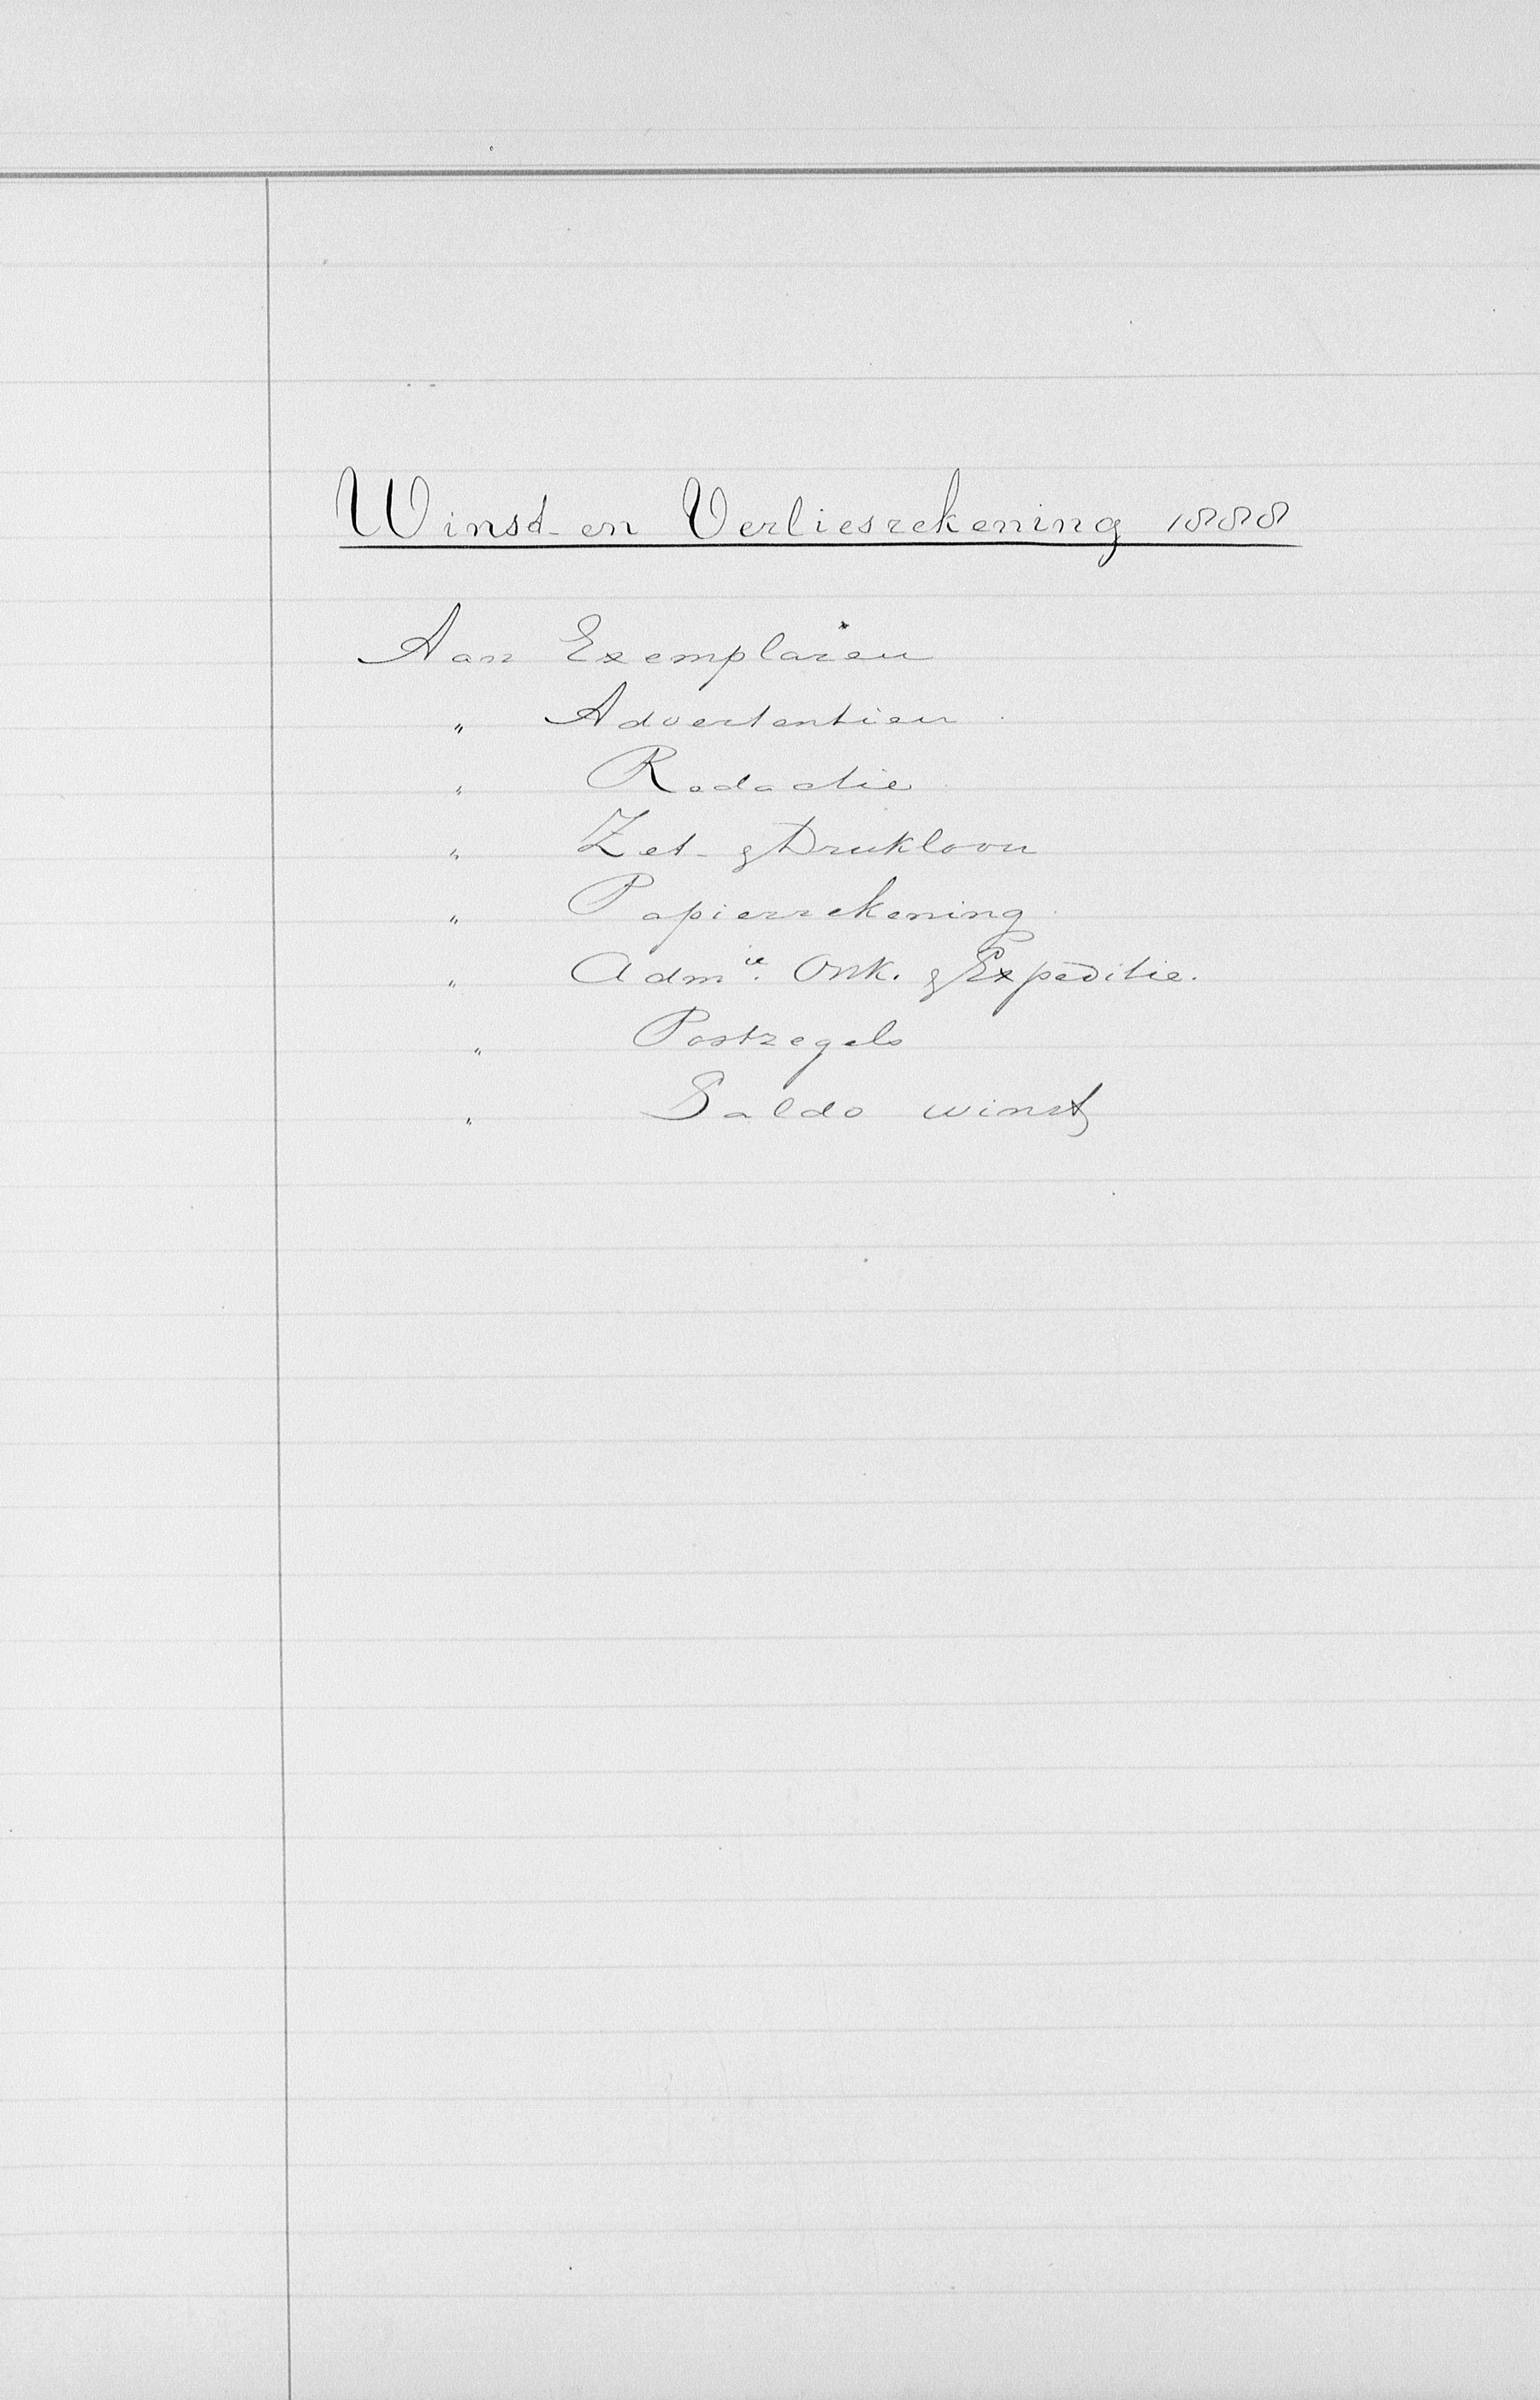 Winst- en Verliesrekening 1888
Aan Exemplaren
" Advertentien
" Redactie
" Zet- & Drukloon
" Papierrekening
" Admie. Onk. & Expeditie.
" Postzegels
" Saldo winst